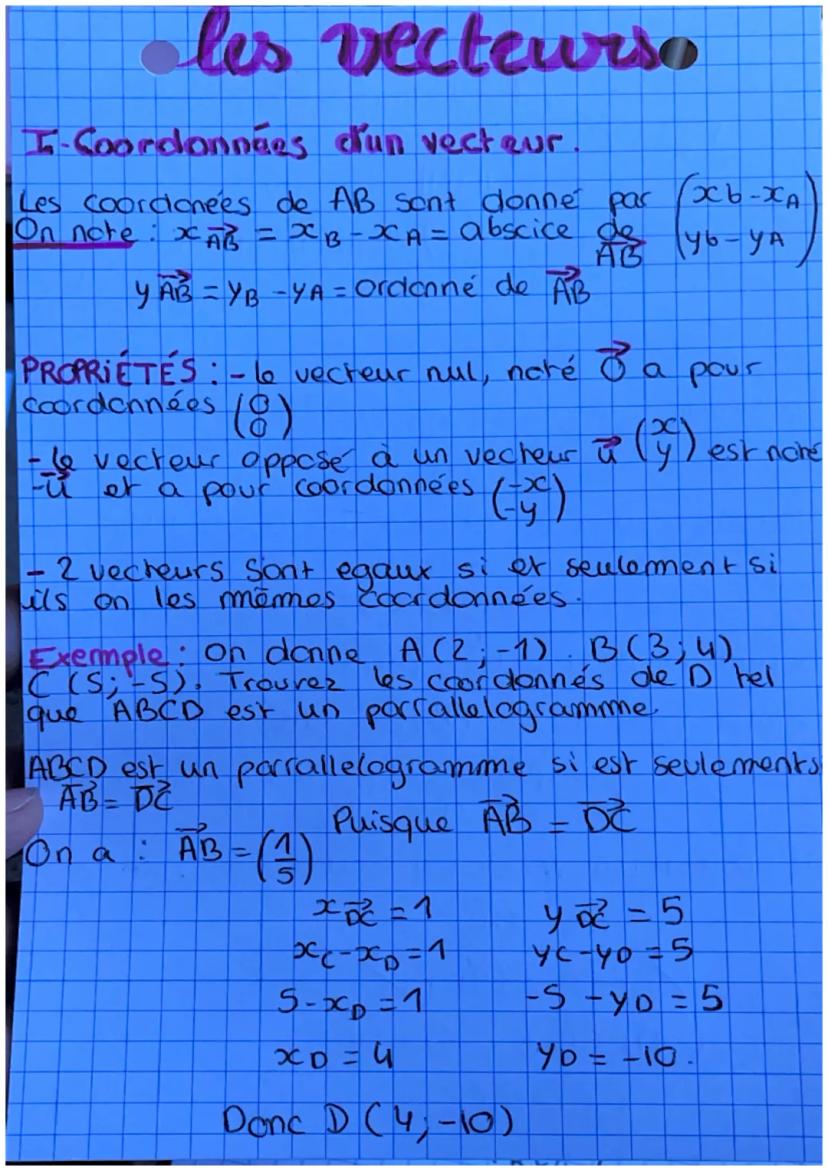 les vecteurs
I-Coordonnées d'un vecteur.
Les coordonées de AB sont donné par (xb-xA
On note : xAB = xB - xA = abscice de AB yb-yA)
yAB = yB - yA = ordonné de AB
PROPRIÉTÉS : - le vecteur nul, noté 0 a pour
coordonnées (0 0)
- le vecteur opposé à un vecteur u (x y) est noté
-u et a pour coordonnées (-x -y)
- 2 vecteurs sont egaux si et seulement si
ils on les mêmes coordonnées.
Exemple : On donne A(2;-1). B(3;4)
C (5;-5). Trouvez les coordonnés de D tel
que ABCD est un parrallelogramme
ABCD est un parrallelogramme si est seulements
AB = DC
Puisque AB = DC
On a : AB = (1 5)
xDC = 1 yDC = 5
xC-xD = 1 yC-yD = 5
5-xD = 1 -5-yD = 5
xD = 4 yD = -10.
Donc D (4;-10)